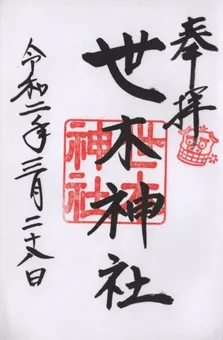 奉拝
世木神社
世木神社
令和二年三月二十八日